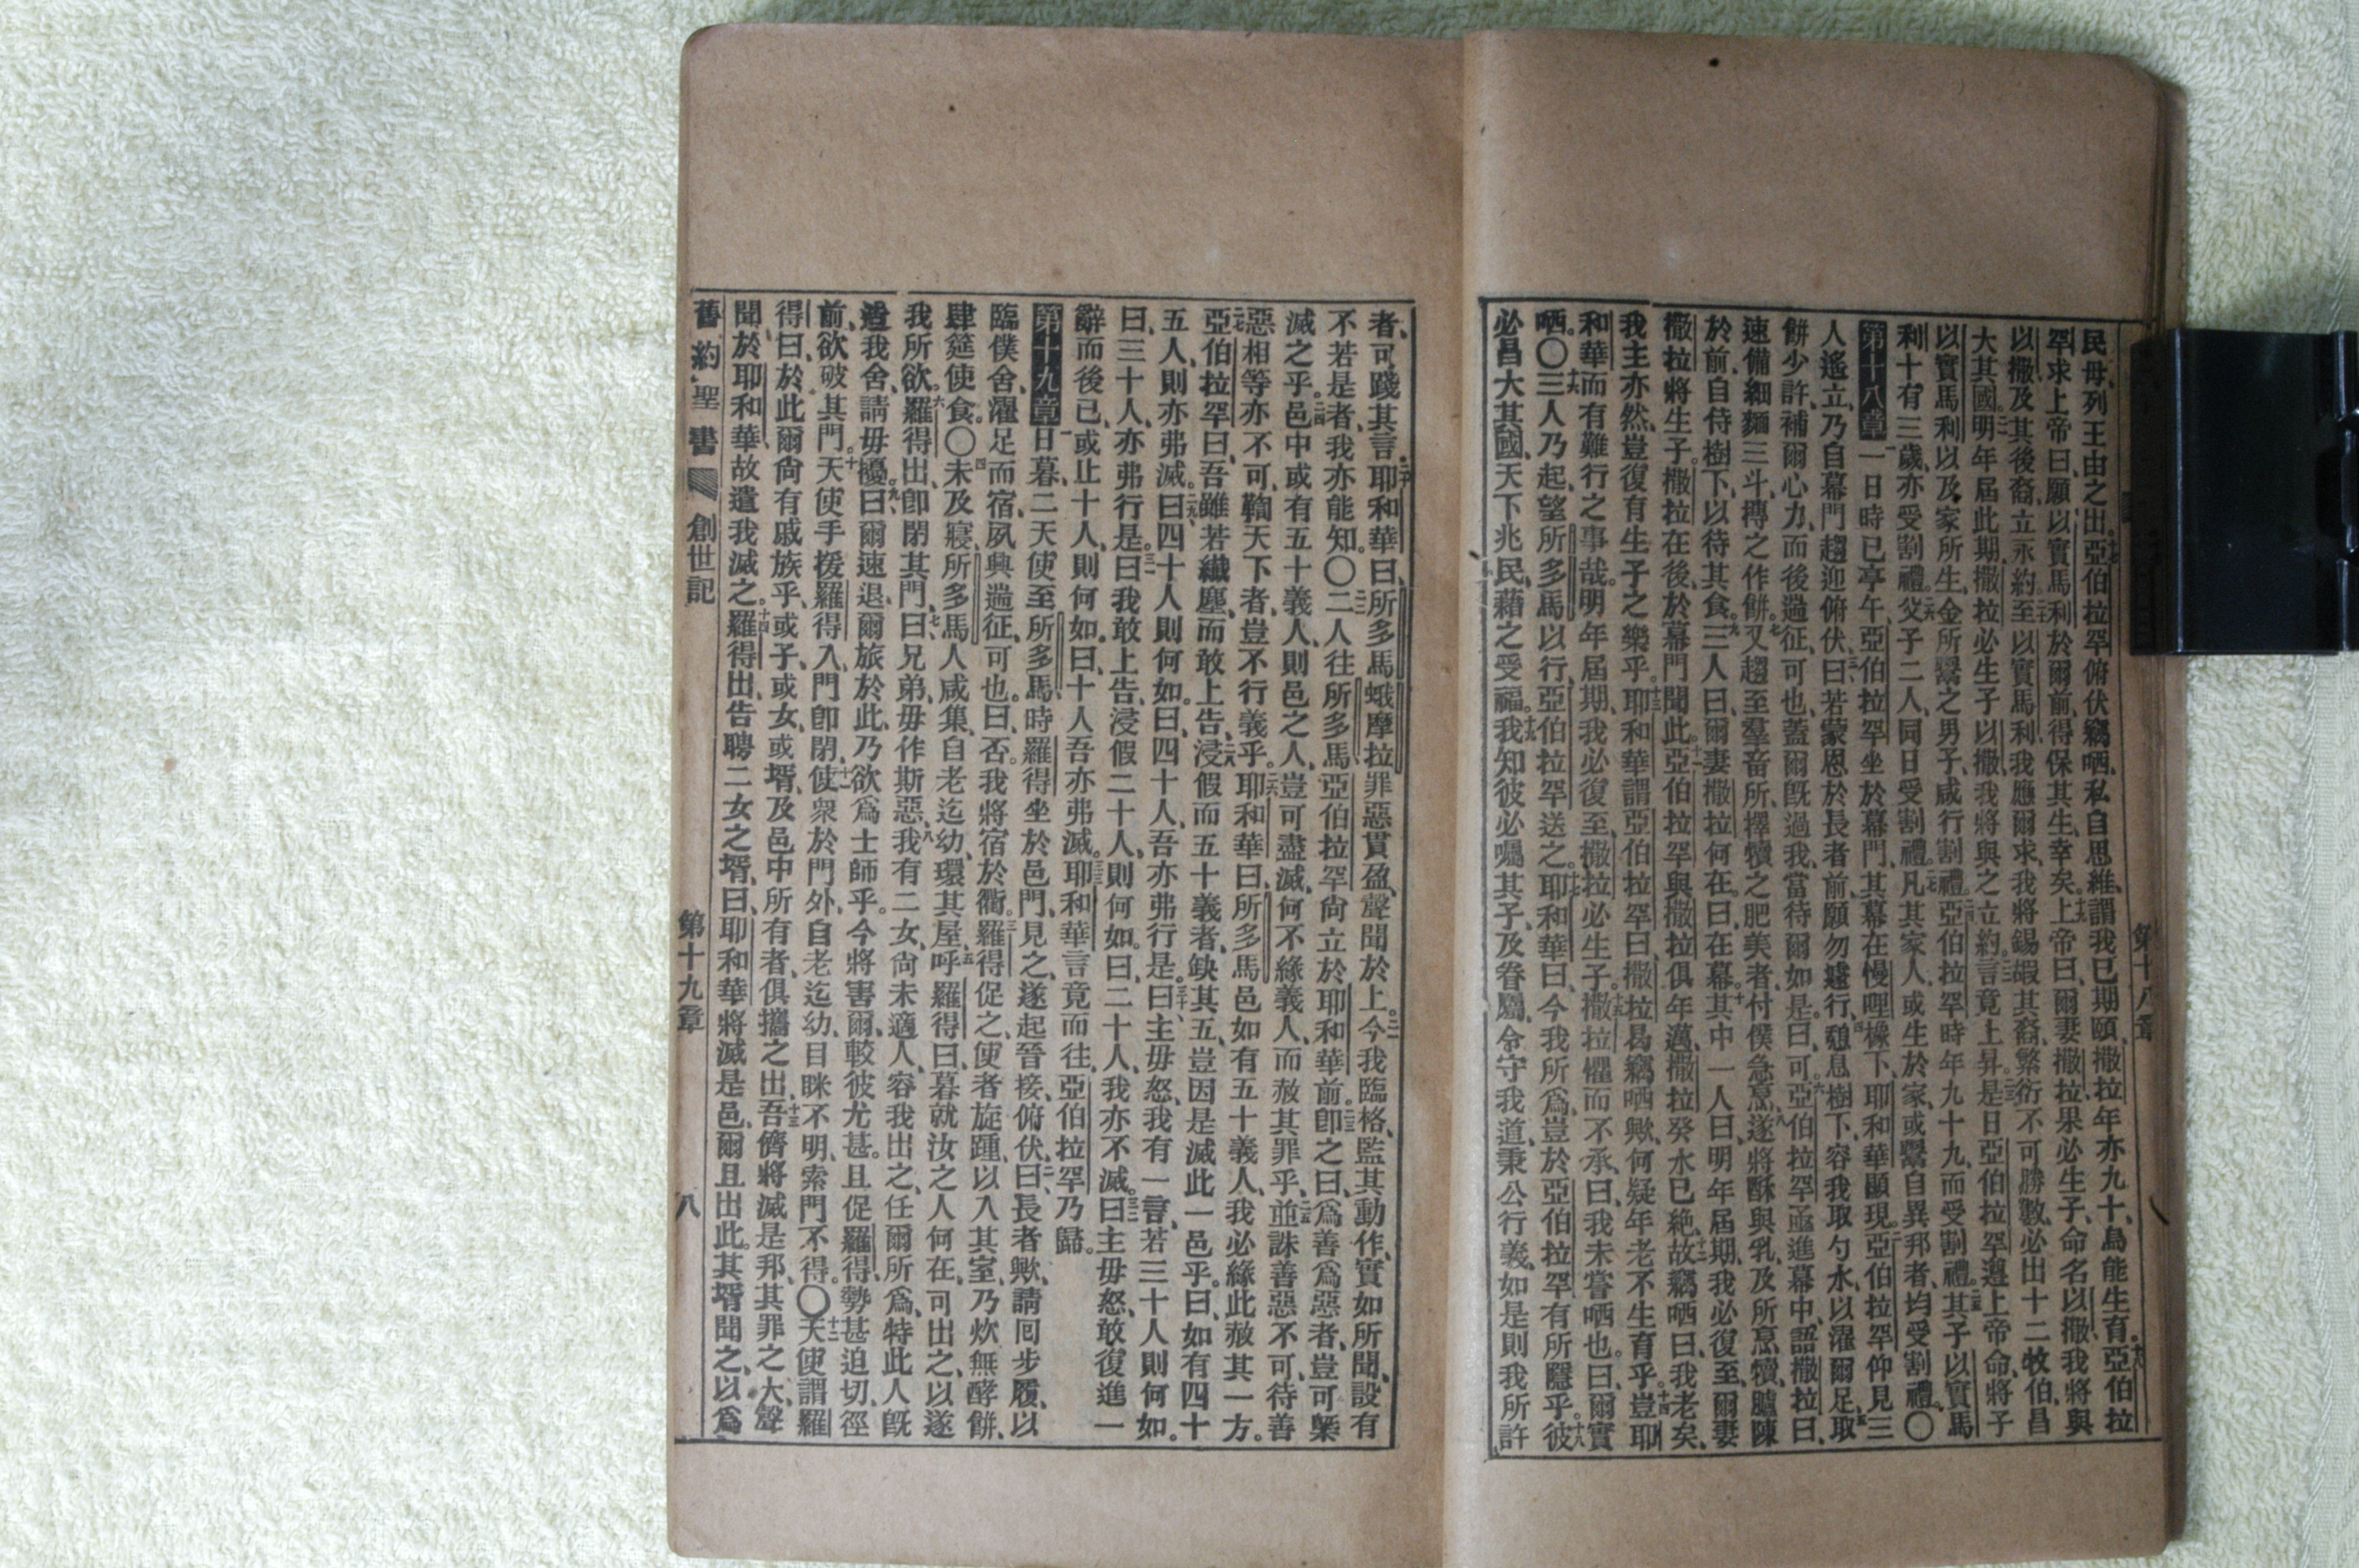 民母、列王由之出。十七亞伯拉罕俯伏竊哂、私自思維、謂我已期頤、撒拉年亦九十、烏能生育。十八亞伯拉
罕求上帝曰、願以實馬利於爾前、得保其生、幸矣。十九上帝曰、爾妻撒拉果必生子、命名以撒、我將與
以撒、及其後裔、立永約。二十至以實馬利、我應爾求、我將錫嘏其裔、繁衍不可勝數、必出十二牧伯、昌
大其國。二一明年屆此期、撒拉必生子以撒、我將與之立約。二二言竟上昇。二三是日亞伯拉罕遵上帝命、將子
以實馬利、以及家所生、金所鬻之男子、咸行割禮。二四亞伯拉罕時年九十九、而受割禮。二五其子以實馬
利十有三歲、亦受割禮。二六父子二人、同日受割禮。二七凡其家人、或生於家、或鬻自異邦者、均受割禮。〇
第十八章 一一日時已亭午、亞伯拉罕坐於幕門、其幕在慢哩橡下、耶和華顯現。二亞伯拉罕仰見三
人遙立、乃自幕門趨迎俯伏、三曰、若蒙恩於長者前、願勿遽行、四憩息樹下、容我取勺水、以濯爾足、五取
餅少許、補爾心力、而後遄征可也、蓋爾旣過我、當待爾如是、曰、可。六亞伯拉罕亟進幕中、語撒拉曰、
速備細麵三斗、摶之作餅。七又趨至羣畜所、擇犢之肥美者、付僕急烹、八遂將酥與乳、及所烹犢、臚陳
於前、自侍樹下、以待其食。九三人曰、爾妻撒拉何在、曰、在幕。十其中一人曰、明年屆期、我必復至、爾妻
撒拉將生子。撒拉在後、於幕門聞此。十一亞伯拉罕與撒拉俱年邁、撒拉癸水已絶、十二故竊哂曰、我老矣、
我主亦然、豈復有生子之樂乎。十三耶和華謂亞伯拉罕曰、撒拉曷竊哂歟、何疑年老不生育乎。十四豈耶
和華而有難行之事哉。明年屆期、我必復至、撒拉必生子。十五撒拉懼而不承、曰、我未嘗哂也。曰、爾實
哂。〇十六三人乃起、望所多馬以行、亞伯拉罕送之。十七耶和華曰、今我所爲、豈於亞伯拉罕有所隱乎。十八彼
必昌大其國、天下兆民、藉之受福。十九我知彼必囑其子、及眷屬、令守我道、秉公行義、如是則我所許
者、可踐其言。二十耶和華曰、所多馬蛾摩拉罪惡貫盈、聲聞於上。二一今我臨格、監其動作、實如所聞、設有
不若是者、我亦能知。〇二二二人往所多馬、亞伯拉罕尙立於耶和華前。二三卽之曰、爲善、爲惡者、豈可槩
滅之乎。二四邑中或有五十義人、則邑之人、豈可盡滅、何不緣義人、而赦其罪乎、二五並誅善惡不可、待善
惡相等亦不可、鞫天下者、豈不行義乎。二六耶和華曰、所多馬邑如有五十義人、我必緣此赦其一方。
二七亞伯拉罕曰、吾雖若纎塵、而敢上告、二八浸假而五十義者、缺其五、豈因是滅此一邑乎。曰、如有四十
五人、則亦弗滅。二九曰、四十人則何如。曰、四十人、吾亦弗行是。三十曰、主毋怒、我有一言、若三十人則何如。
曰、三十人、亦弗行是。三一曰、我敢上告、浸假二十人、則何如。曰、二十人、我亦不滅。三二曰、主毋怒、敢復進一
辭而後已、或止十人、則何如。曰、十人、吾亦弗滅。三三耶和華言竟而往、亞伯拉罕乃歸。
第十九章 一日暮、二天使至所多馬、時羅得坐於邑門、見之、遂起晉接、俯伏、二曰、長者歟、請囘步履、以
臨僕舍、濯足而宿、夙興遄征可也。曰、否、我將宿於衢。三羅得促之、使者旋踵、以入其室、乃炊無酵餅、
肆筵使食。〇四未及寢、所多馬人咸集、自老迄幼、環其屋、五呼羅得曰、暮就汝之人何在、可出之、以遂
我所欲。六羅得出、卽閉其門、七曰、兄弟、毋作斯惡、八我有二女、尙未適人、容我出之、任爾所爲、特此人旣
過我舍、請毋擾。九曰、爾速退、爾旅於此、乃欲爲士師乎。今將害爾、較彼尤甚。且促羅得、勢甚迫切、徑
前、欲破其門。十天使手援羅得入、門卽閉、十一使衆於門外、自老迄幼、目眯不明、索門不得。〇十二天使謂羅
得曰、於此爾尙有戚族乎、或子、或女、或壻、及邑中所有者、俱攜之出、十三吾儕將滅是邦、其罪之大、聲
聞於耶和華、故遣我滅之。十四羅得出、告聘二女之壻、曰、耶和華將滅是邑、爾且出此。其壻聞之、以爲
舊約聖書 創世記 第十九章 八